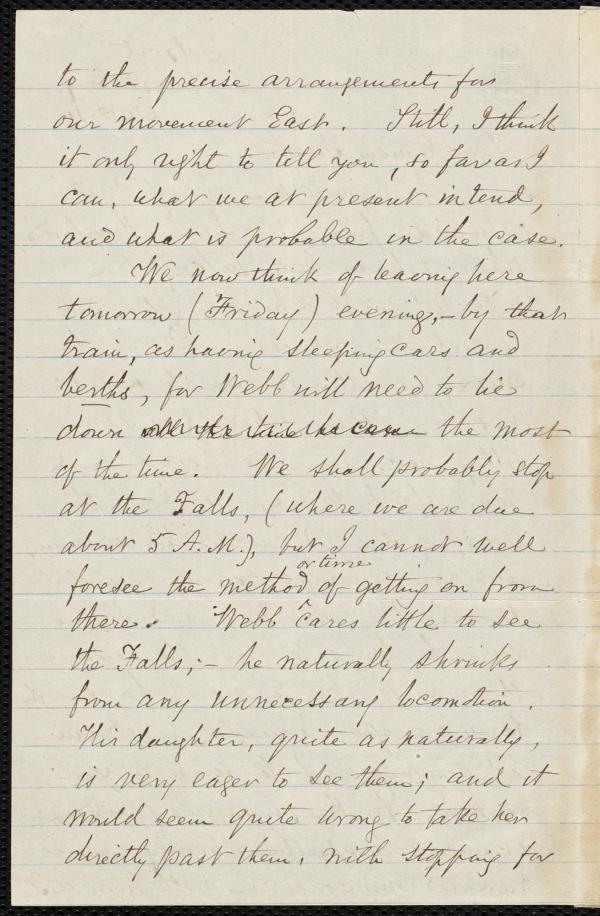 to the precise arrangements for
our movement East. Still, I think
it only right to tell you, so far as I
can, what we at present intend,
and what is probable in the case.
We now think of leaving here
tomorrow (Friday) evening,- by that
train, as having sleeping cars and
berths, for Webb will need to lie
down all the time he can the most
of the time. We shall probably stop
at the Falls, (where we are due
about 5 A.M.), but I cannot well
or time
foresee the method of getting on from
there. Webb cares little to see
the Falls;- he naturally shrinks
from any unnecessary locomotion.
His daughter, quite as naturally,
is very eager to see them; and it
would seem quite wrong to take her
directly past them, with stopping for